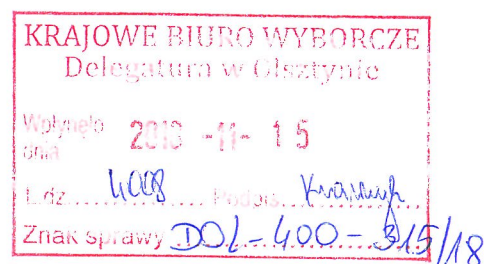 KRAJOWE BIURO WYBORCZE
Delegatura w Olsztynie
Wpłynęło
dnia 2018 -11- 15
L.dz. 4008 Podpis
Znak sprawy DOL-400-315/18